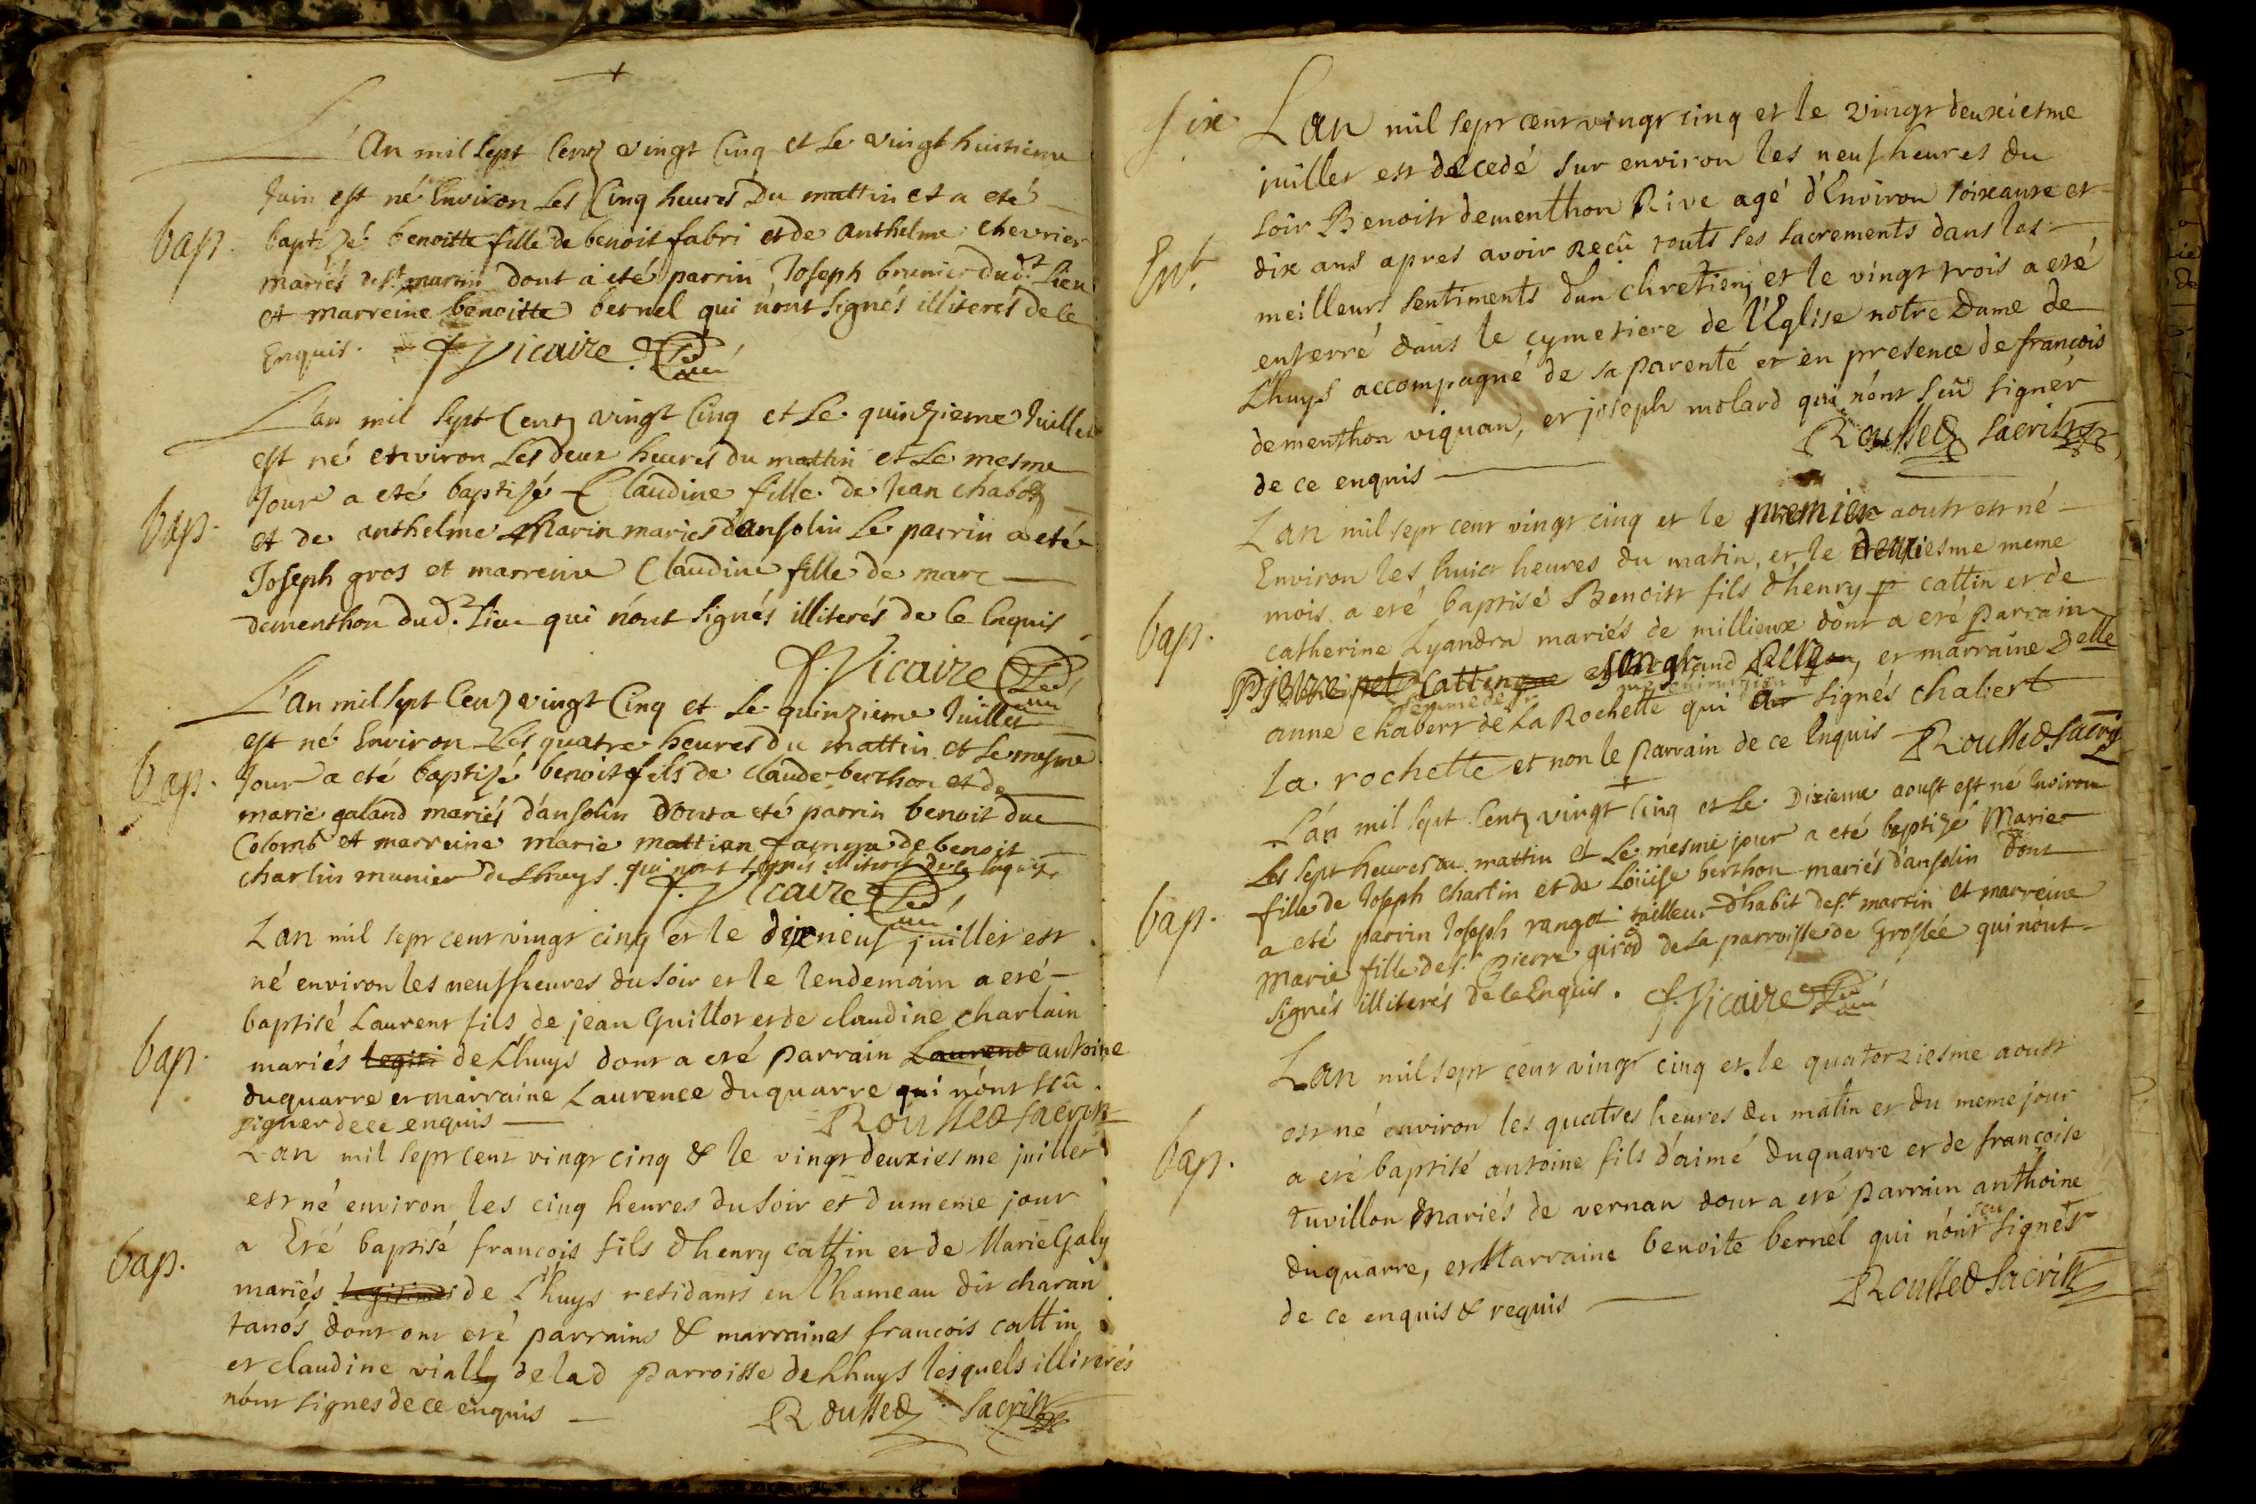 L'An mil sept Centz vingt Cinq et Le vingt huitieme
Juin est né Environ Les Cinq heures Du mattin et a eté
bap. baptizé benoitte fille de benoit fabri et de Anthelme chevrier
mariés de St martin dont a eté parrin Joseph brunier dud.t Lieu
et marreine benoitte bernel qui n'ont signés illiterés de ce
Enquis. f. Vicaire Curé
L'an mil sept Centz vingt Cinq et Le quinzieme Juillet
est né environ Les deux heures du mattin et Le mesme
bap. Jour a eté baptizé Claudine fille de Jean chabot
et de anthelme Marin mariés d'ansolin Le parrin a eté
Joseph gros et marreine Claudine fille de marc
dementhon dud.t Lieu qui n'ont signés illiterés de ce Enquis
f. Vicaire Curé
L'an mil sept Centz vingt Cinq et Le quinzieme Juillet
est né Environ Les quatre heures du mattin et Le mesme
bap. Jour a eté baptizé benoit fils de claude berthon et de
marie galand mariés d'ansolin dont a eté parrin benoit du
Colomb et marreine marie mattian femme de benoit
charlin munier de Lhuys qui n'ont signés illiterés de ce Enquis
f. Vicaire Curé
Lan mil sept cent vingt cinq et le dixneuf juillet est
né environ les neuf heures du soir et le lendemain a eté
baptisé Laurent fils de jean Guillot et de claudine charlain
bap. mariés legiti de Lhuys dont a eté parrain Laurent antoine
duquarre et marraine Laurence duquarre qui n'ont scu
signer de ce enquis Roussed sacrist
Lan mil sept cent vingt cinq & le vingt deuxiesme juillet
est né environ les cinq heures du soir et du meme jour
bap. a Eté baptisé françois fils d'henry cattin et de Marie Galy
mariés legitimes de Lhuys residants en l'hameau dit charan
tanos dont ont eté parrains & marraines francois cattin
et claudine vially de lad parroisse de Lhuys lesquels illiterés
n'ont signes de ce enquis Roussed sacrist
Lan mil sept cent vingt cinq et le vingt deuxiesme
juillet est decedé sur environ les neuf heures du
soir Benoist dementhon Rive agé d'Environ soixante et
Ent. dix ans apres avoir Reçû touts ses sacrements dans les
meilleurs sentiments d'un chretien, et le vingt trois a eté
enterré dans le cymetiere de l'Eglise notre Dame de
Lhuys accompagné de sa parenté et en presence de françois
dementhon viguan, et joseph molard qui n'ont scû signer
de ce enquis Roussed sacrist
Lan mil sept cent vingt cinq et le premier aoust est né
Environ les huict heures du matin, et le deuxiesme meme
mois a eté baptisé Benoist fils d'henry cattin et de
bap. catherine Lyandra mariés de millieux dont a eté parrain
Pierre cattin son grand, et marraine Delle
anne chabert de La Rochette qui a signés chabert
la rochette et non le parrain de ce Enquis Roussed sacrist
L'an mil sept Centz vingt Cinq et Le Dixieme aoust est né Environ
Les sept heures du mattin et Le mesme jour a eté baptizé Marie
fille de Joseph charlin et de Loüise berthon mariés d'ansolin dont
bap. a eté parrin Joseph rangot tailleur d'habit de St martin et marreine
Marie fille de Sr Pierre girod de La parroisse de Groslée qui n'ont
signés illiterés de ce Enquis. f. Vicaire Curé
Lan mil sept cent vingt cinq et le quatorziesme aoust
est né environ les quatres heures du matin et du meme jour
bap. a eté baptisé antoine fils d'aimé duquarre et de françoise
tuvillon mariés de vernan dont a eté parrain anthoine
duquarre, et Marraine benoite bernel qui n'ont scu signés
de ce enquis & requis Roussed sacrist